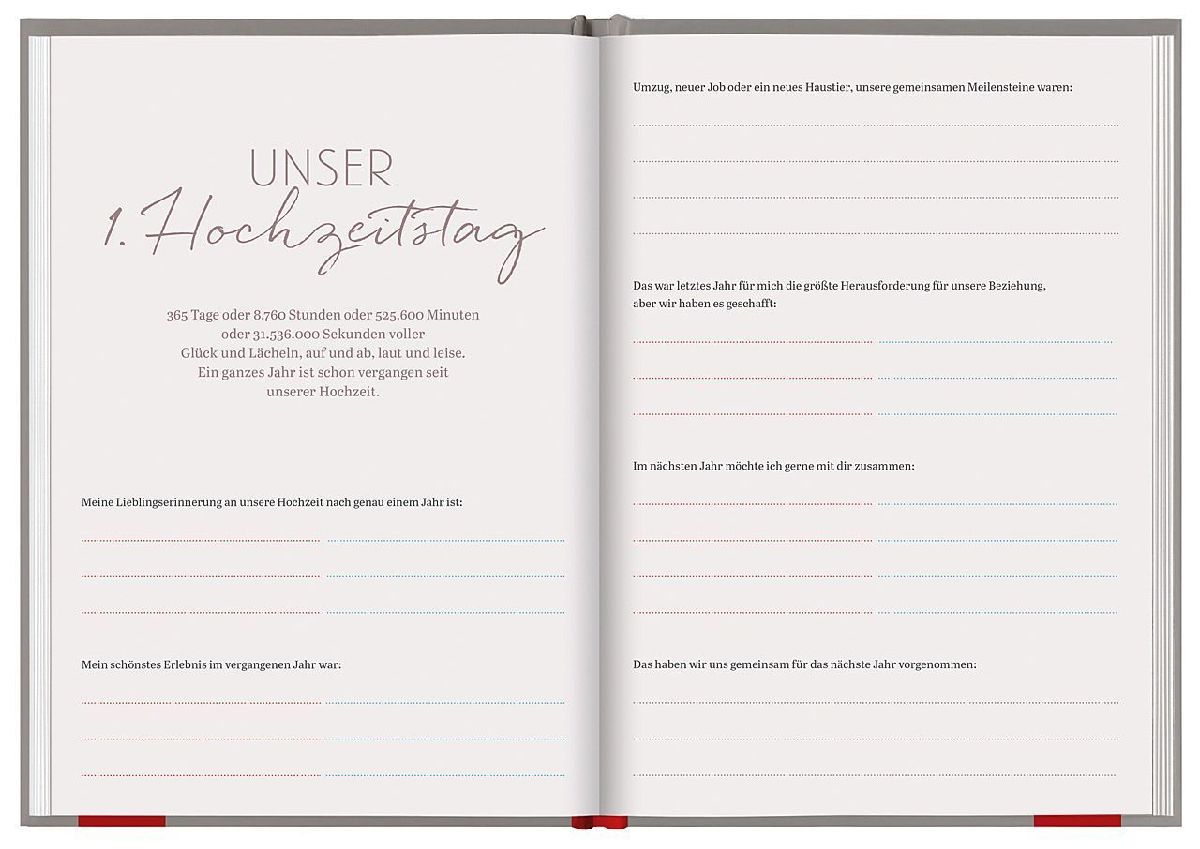 UNSER
1. Hochzeitstag
365 Tage oder 8.760 Stunden oder 525.600 Minuten
oder 31.536.000 Sekunden voller
Glück und Lächeln, auf und ab, laut und leise.
Ein ganzes Jahr ist schon vergangen seit
unserer Hochzeit.
Meine Lieblingserinnerung an unsere Hochzeit nach genau einem Jahr ist:
Mein schönstes Erlebnis im vergangenen Jahr war:
Umzug, neuer Job oder ein neues Haustier, unsere gemeinsamen Meilensteine waren:
Das war letztes Jahr für mich die größte Herausforderung für unsere Beziehung,
aber wir haben es geschafft:
Im nächsten Jahr möchte ich gerne mit dir zusammen:
Das haben wir uns gemeinsam für das nächste Jahr vorgenommen: